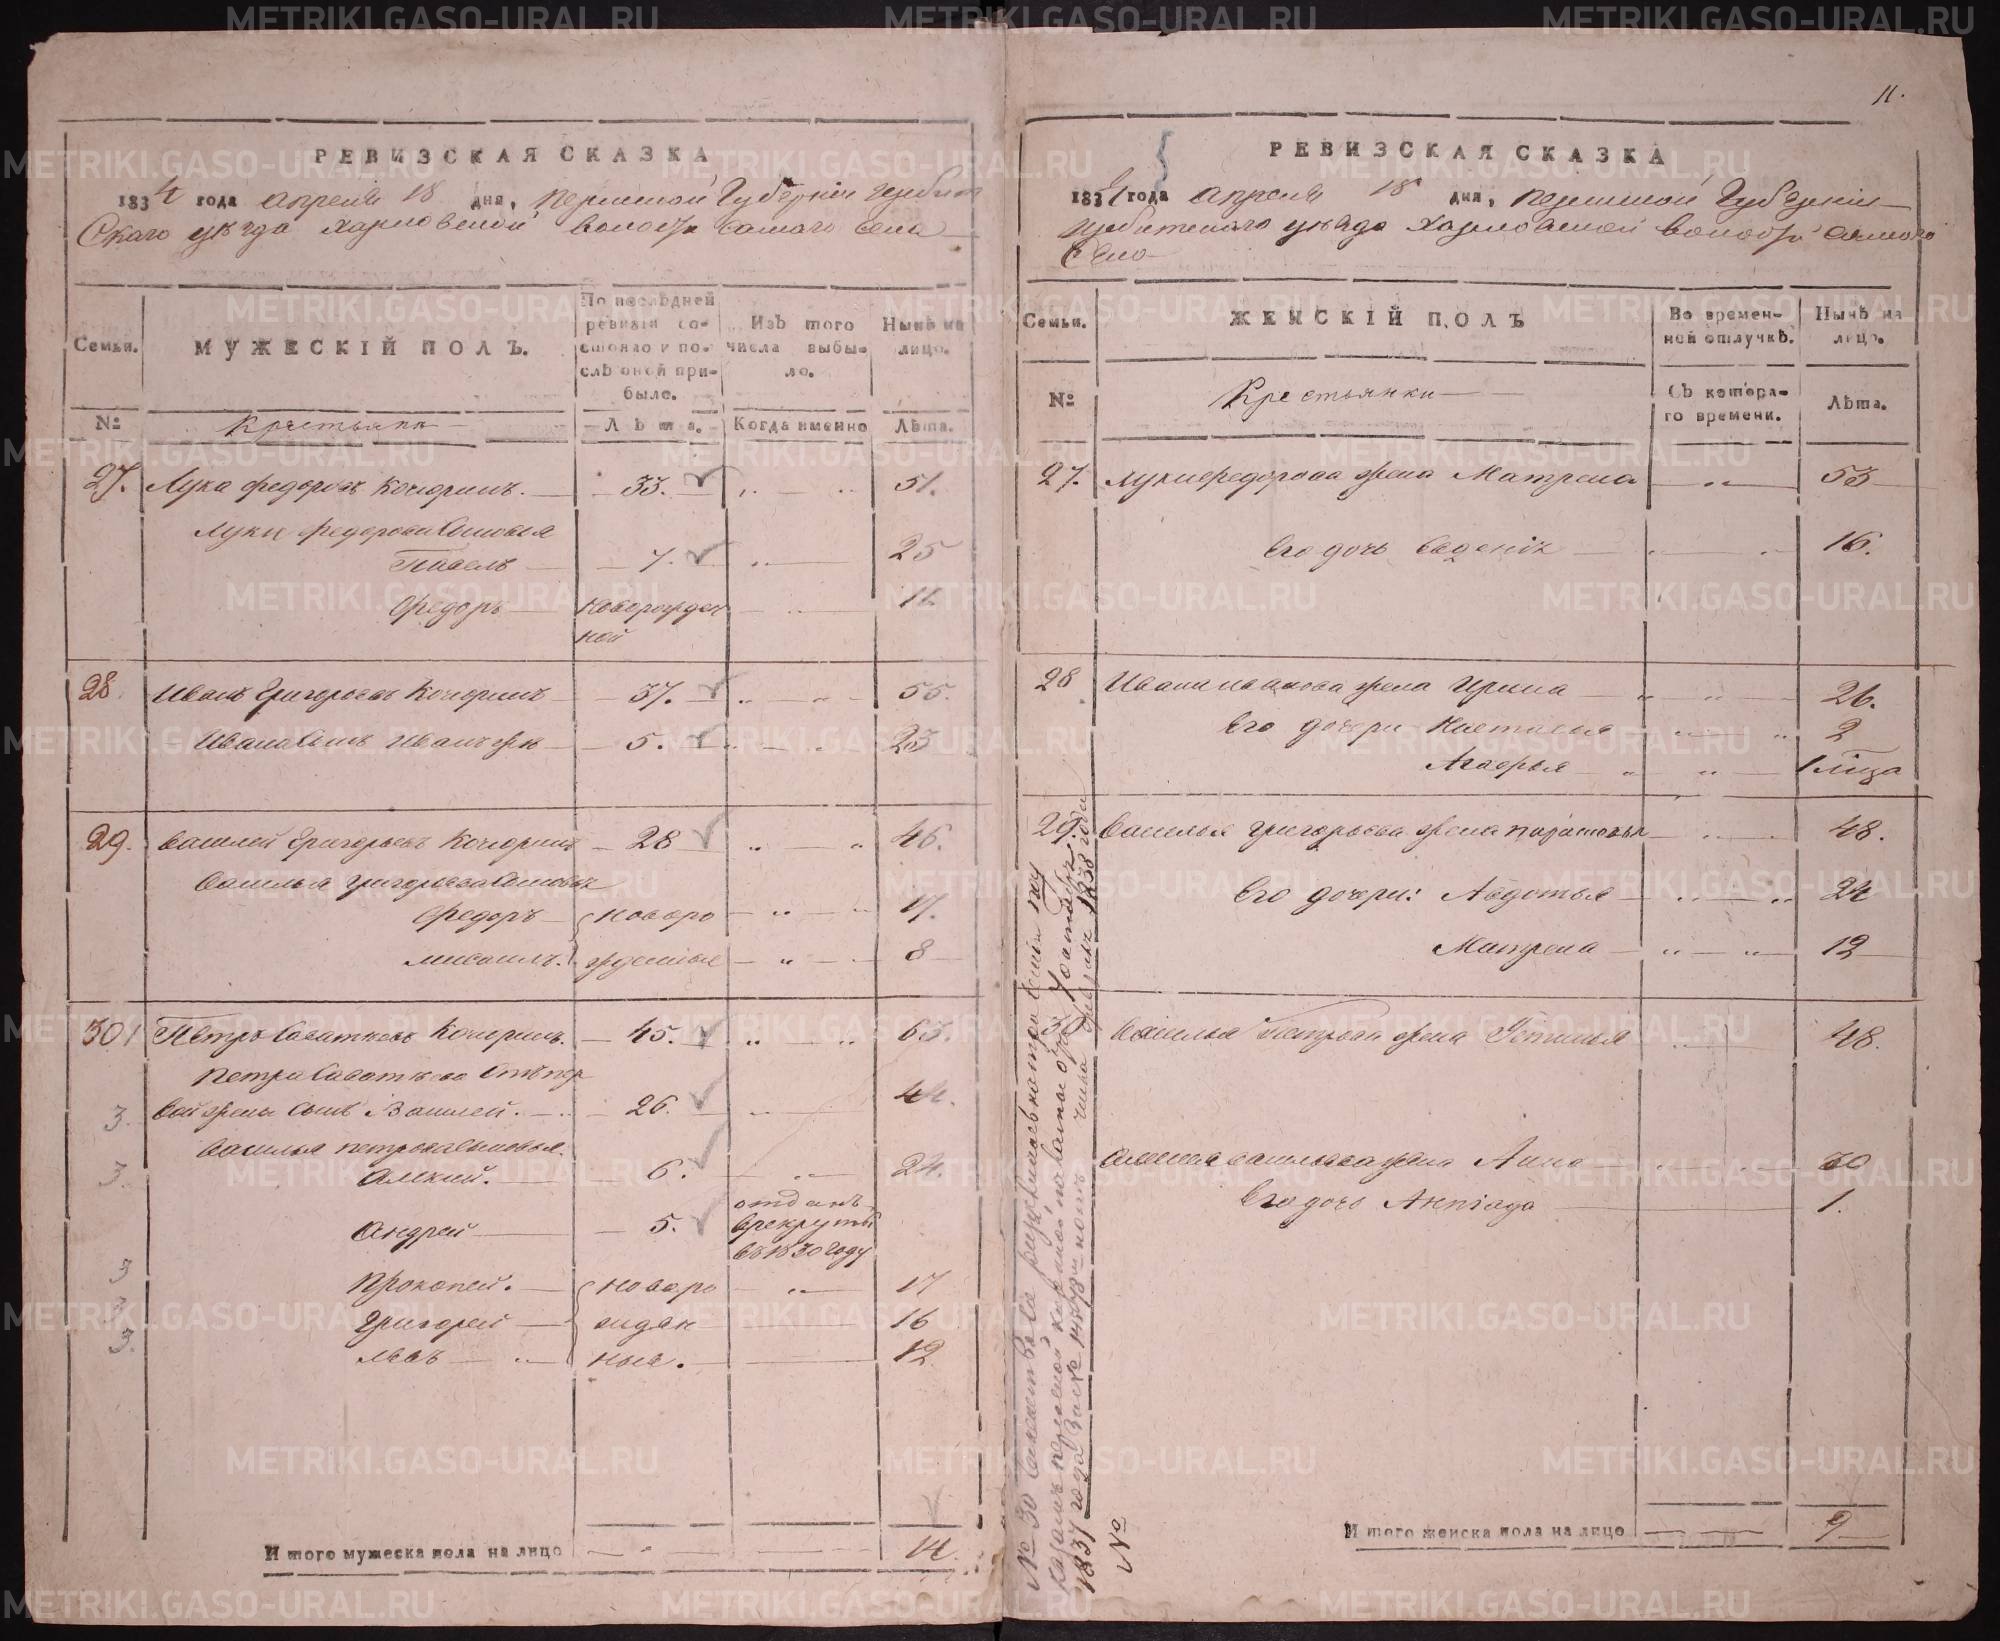 11.
РЕВИЗСКАЯ СКАЗКА
1834 года апреля 18 дня, Пермской Губернии Ирбит
скаго уезда Харловской волости самаго села
Семьи.
МУЖЕСКІЙ ПОЛЪ.
По послѣдней ревизіи состояло и послѣ оной прибыло.
Изъ того числа выбыло.
Нынѣ на лицо.
№
Крестьяна
Лѣта.
Когда именно
Лѣта.
27. Лука Федоровъ Кочюринъ. 33. 51.
Луки Федорова сыновья
Павелъ 7. 25
Федоръ новорожден
ной
28. Иванъ Григорьевъ Кочюринъ 37. 55.
Ивана сынъ Иванъ же 5. 23
29. Василей Григорьевъ Кочюринъ 28 46.
Василья Григорьева сыновья
Федоръ новоро 17.
Михаилъ. жденные 8
30 Петръ Саватеевъ Кочюринъ. 45. 63.
Петра Саватеева отъ пер
вой жены сынъ Василей. 26. 44.
3.
Василья Петрова сыновья.
Алексей. 6. 24.
3.
отданъ
Андрей 5. в рекруты
въ 1830 году
Прокопей. новоро 17
3
Григорей 16
3
Левъ ные. 12
3.
Итого мужеска пола на лицо 14.
РЕВИЗСКАЯ СКАЗКА
1834 года апреля 18 дня, Пермской Губернии
Ирбитскаго уезда Харловской волости самаго
села
Семьи.
ЖЕНСКІЙ ПОЛЪ
Во временной отлучкѣ.
Нынѣ на лицо.
№
Крестьянки
Съ котораго времени.
Лѣта.
27. Луки Федорова жена Матрена 53
Его дочь 16.
28 Ивана Иванова жена Ирина 26.
Его дочери Настасья 2
Агафья 1 м͠ца
29. Василья Григорьева жена Парасковья 48.
Его дочери: Авдотья 24
Матрена 12
30 Василья Петрова жена Устинья 48.
Алексея Васильева жена Анна 30
Его дочь 1.
Итого женска пола на лицо 9
№ 30 семейства
1837 года 1838 года
№
METRIKI.GASO-URAL.RU